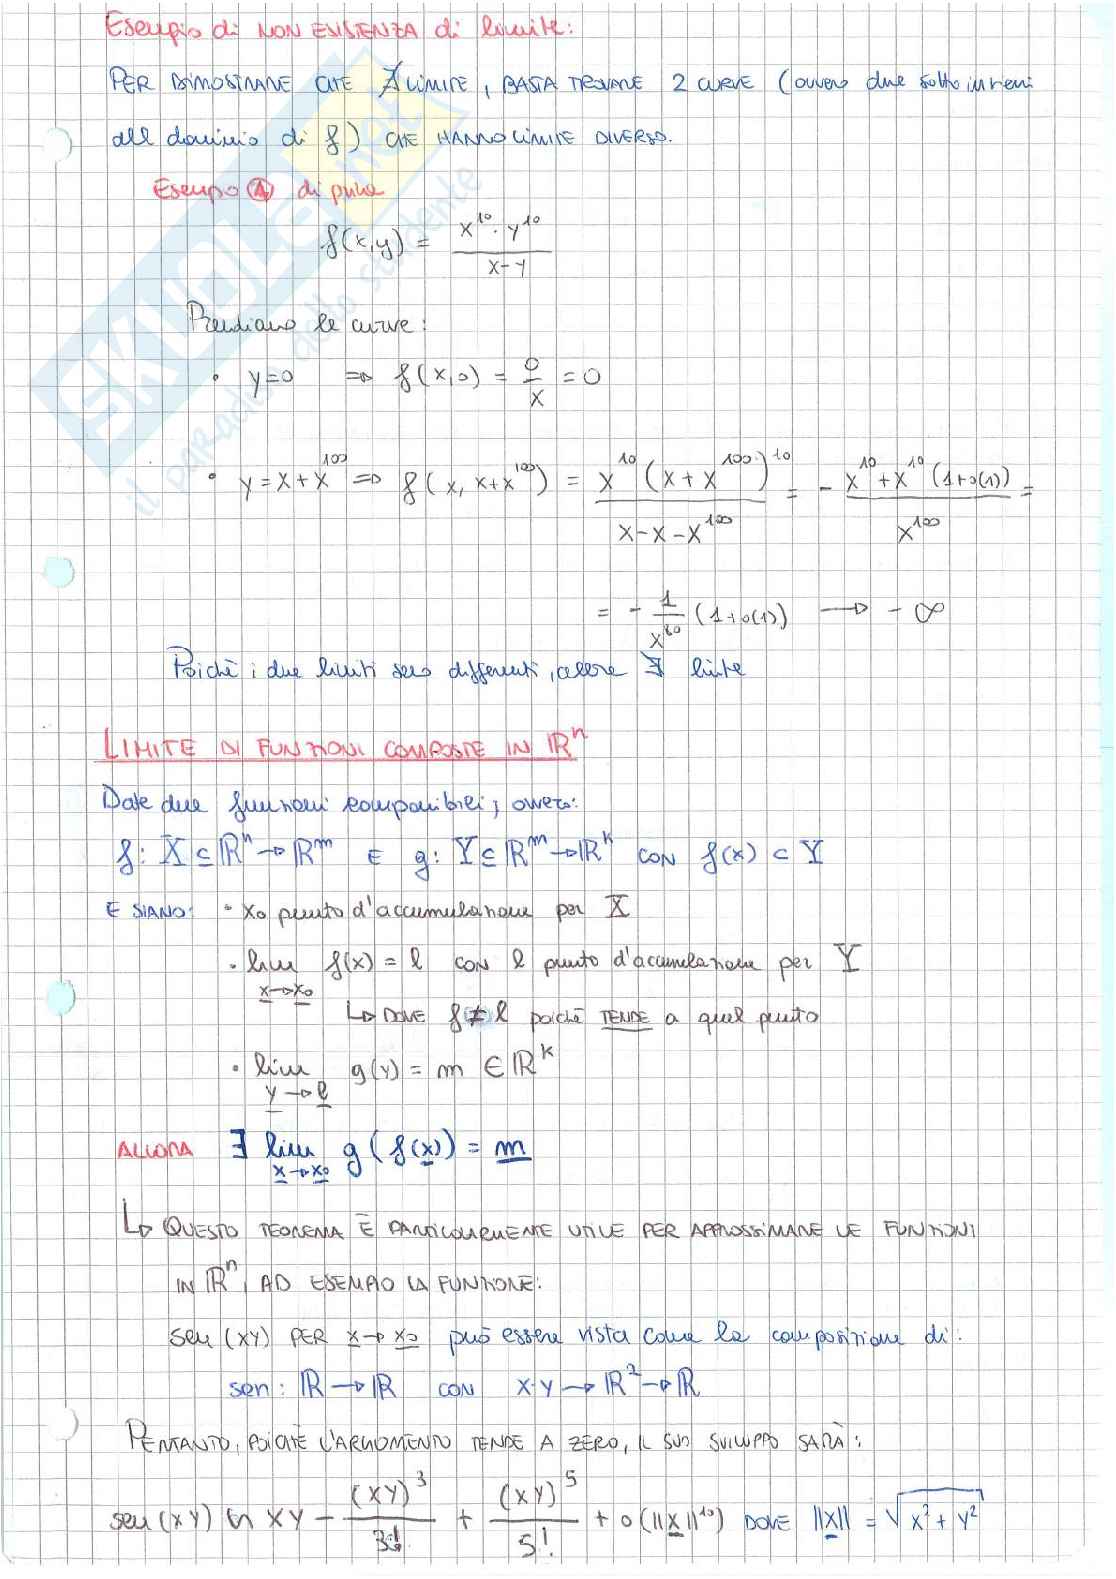 Esempio di NON ESISTENZA di limite:
PER DIMOSTRARE CHE ∄ LIMITE, BASTA TROVARE 2 CURVE (ovvero due sottoinsiemi
all dominio di f) CHE HANNO LIMITE DIVERSO.
Esempio ① di prima
f(x,y) = x^10 · y^10 / x-y
Prendiamo le curve:
• y=0 => f(x,0) = 0/x = 0
• y=x+x^100 => f(x, x+x^100) = x^10 (x+x^100)^10 / x-x-x^100 = - x^10+x^10 (1+o(1)) / x^100 =
= - 1/x^80 (1+o(1)) → -∞
Poichè i due limiti sono differenti, allora ∄ limite
LIMITE DI FUNZIONI COMPOSTE IN ℝ^n
Date due funzioni componibili, ovvero:
f: X ⊆ ℝ^n → ℝ^m E g: Y ⊆ ℝ^m → ℝ^k CON f(x) ⊂ Y
E SIANO: • x0 punto d'accumulazione per X
• lim x→x0 f(x) = l CON l punto d'accumulazione per Y
↳ DOVE f ≠ l poichè TENDE a quel punto
• lim y→l g(y) = m ∈ ℝ^k
ALLORA ∃ lim x→x0 g(f(x)) = m
↳ QUESTO TEOREMA È PARTICOLARMENTE UTILE PER APPROSSIMARE LE FUNZIONI
IN ℝ^n, AD ESEMPIO LA FUNZIONE:
sen(xy) PER x→x0 può essere vista come la composizione di:
sen: ℝ → ℝ CON x·y → ℝ^2 → ℝ
PERTANTO, POICHÈ L'ARGOMENTO TENDE A ZERO, IL SUO SVILUPPO SARÀ:
sen(xy) ∼ xy - (xy)^3/3! + (xy)^5/5! + o(||x||^10) DOVE ||x|| = √x^2+y^2
SKUOLA.net
il paradiso dello studente